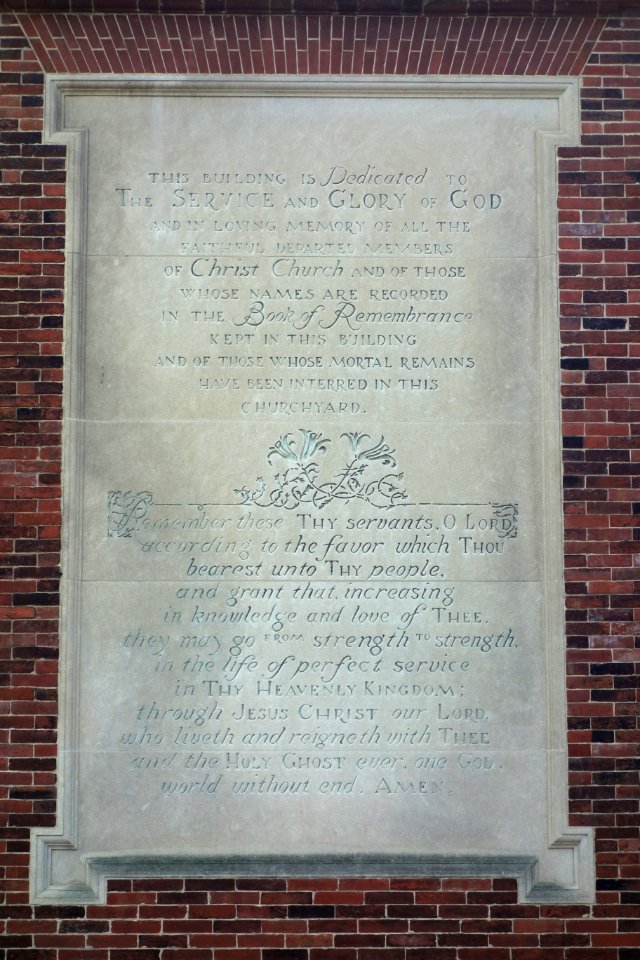 THIS BUILDING IS Dedicated TO
THE SERVICE AND GLORY OF GOD
AND IN LOVING MEMORY OF ALL THE
FAITHFUL DEPARTED MEMBERS
OF Christ Church AND OF THOSE
WHOSE NAMES ARE RECORDED
IN THE Book of Remembrance
KEPT IN THIS BUILDING
AND OF THOSE WHOSE MORTAL REMAINS
HAVE BEEN INTERRED IN THIS
CHURCHYARD.
Remember these THY SERVANTS, O LORD
according to the favor which THOU
bearest unto THY people,
and grant that, increasing
in knowledge and love of THEE,
they may go FROM strength TO strength,
in the life of perfect service
in THY HEAVENLY KINGDOM;
through JESUS CHRIST our LORD,
who liveth and reigneth with THEE
and the HOLY GHOST ever, one GOD,
world without end. AMEN.